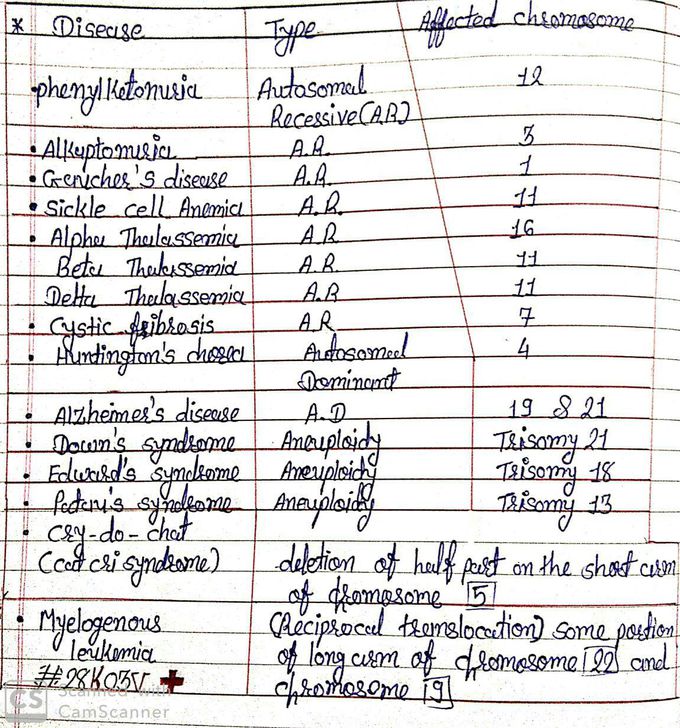 * Disease Type Affected chromosome
• phenylketonuria Autosomal 12
Recessive (AR)
• Alkuptonuria A.R. 3
• Geucher's disease A.R. 1
• Sickle cell Anemia A.R. 11
• Alpha Thalassemia A.R 16
Beta Thalassemia A.R. 11
Delta Thalassemia A.R 11
• Cystic fibrosis A.R 7
• Huntington's chorea Autosomal 4
Dominant
• Alzheimer's disease A.D 19 & 21
• Down's syndrome Aneuploidy Trisomy 21
• Edward's syndrome Aneuploidy Trisomy 18
• Patau's syndrome Aneuploidy Trisomy 13
• Cry-do-chat
(cat cri syndrome) deletion of half part on the short arm
of chromosome 5
• Myelogenous (Reciprocal translocation) some portion
leukemia of long arm of chromosome 22 and
chromosome 9
CS Scanned with
CamScanner